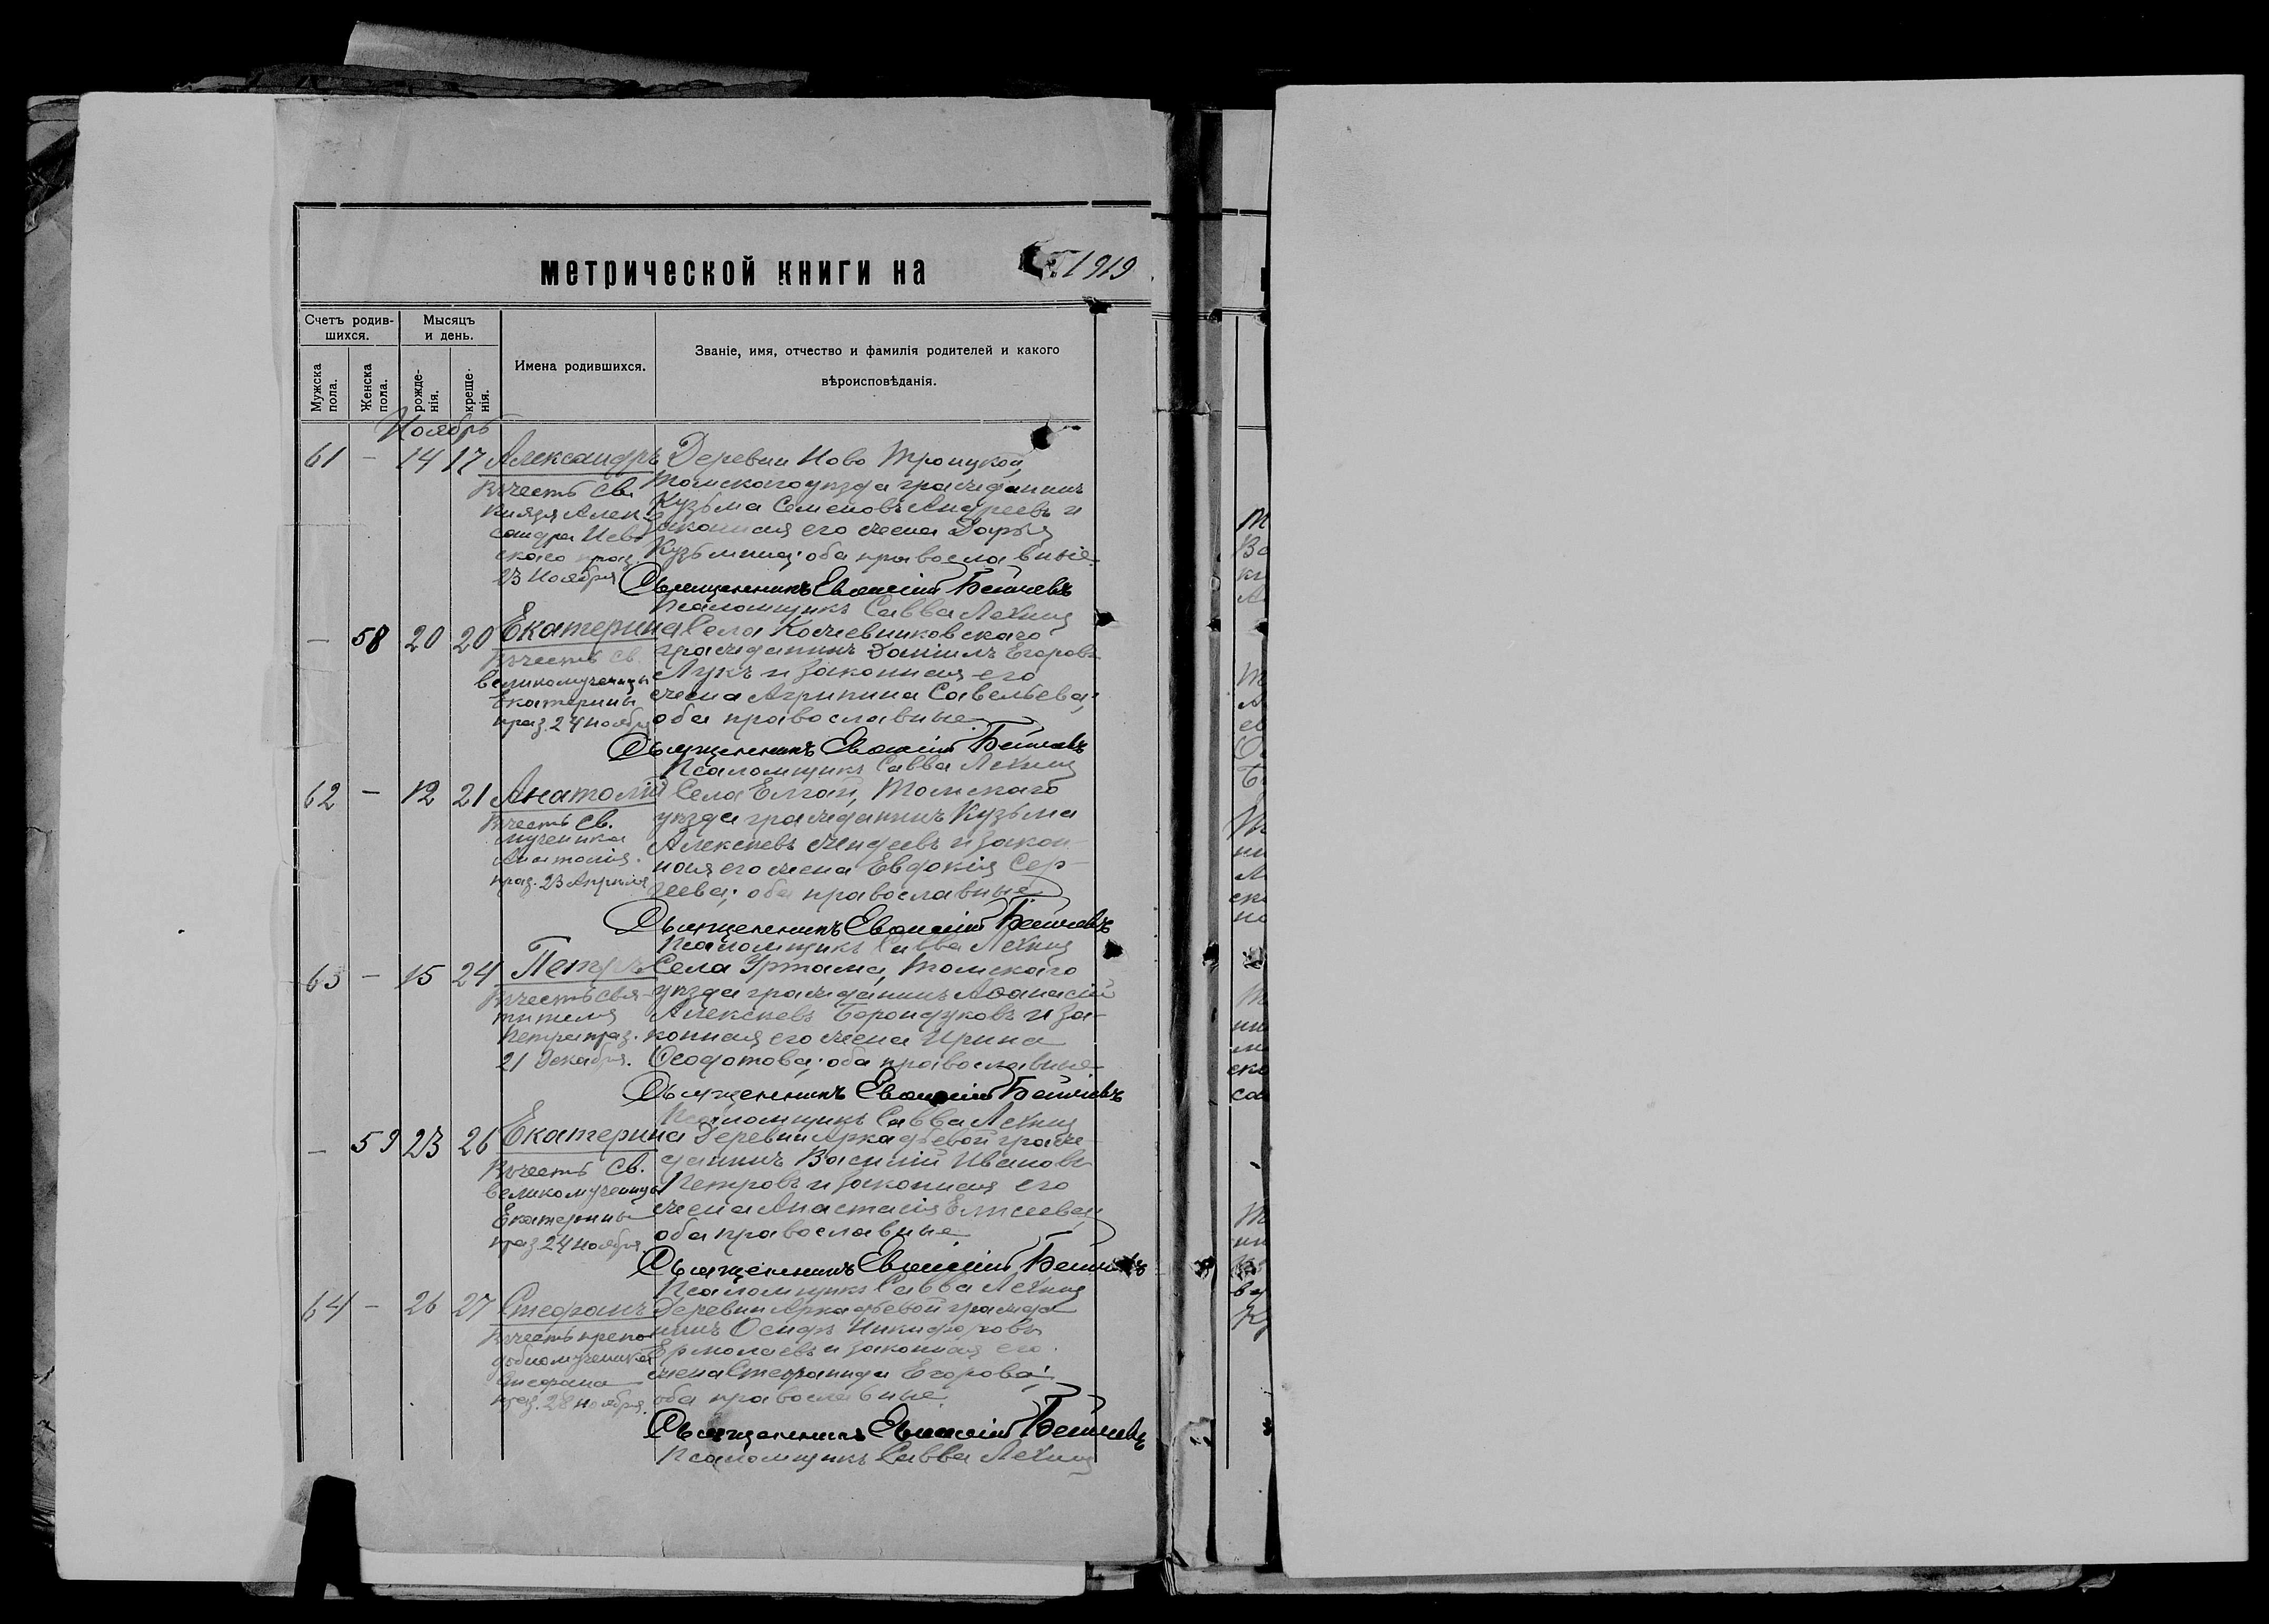 метрической книги на 1919
Счетъ родив-
шихся.
Мужска
пола.
Женска
пола.
Мѣсяцъ
и день.
рожде-
нія.
креще-
нія.
Имена родившихся.
Званіе, имя, отчество и фамилія родителей и какого
вѣроисповѣданія.
Ноябрь
61 - 14 17 Александръ Деревни Ново Троицкой,
Въ честь св. Томскаго уѣзда гражданинъ
князя Алек- Кузьма Семеновъ Андреевъ и
сандра Нев- законная его жена Дарья
скаго праз. Кузьмина; оба православные
23 Ноября Священникъ Евѳимій
Псаломщикъ Савва
- 58 20 20 Екатерина Села Кожевниковскаго
Въ честь св. гражданинъ Даніилъ Егоровъ
великомученицы Лукъ и законная его
Екатерины жена Агрипина Савельева;
праз. 24 ноября оба православные
Священникъ Евѳимій
Псаломщикъ Савва
62 - 12 21 Анатолій Села Елгай, Томскаго
Въ честь св. уѣзда гражданинъ Кузьма
мученика Алексѣевъ и закон-
Анатолія. ная его жена Евдокія Сер-
праз. 23 Апрѣля гѣева; оба православные
Священникъ Евѳимій
Псаломщикъ Савва
63 - 15 24 Петръ Села Уртама, Томскаго
Въ честь свя- уѣзда гражданинъ Аѳанасій
тителя Алексѣевъ Борондуковъ и за-
Петра праз. конная его жена Ирина
21 Декабря. Ѳеодотова; оба православные
Священникъ Евѳимій
Псаломщикъ Савва
- 59 23 26 Екатерина Деревни Аркадьевой граж-
Въ честь св. данинъ Василій Ивановъ
великомученицы Петровъ и законная его
Екатерины жена Анастасія Елисеева;
праз. 24 ноября. оба православные
Священникъ Евѳимій
Псаломщикъ Савва
64 - 26 27 Стефанъ Деревни Аркадьевой гражда
Въ честь препо- нинъ Осифъ Никифоровъ
добномученика Ермолаевъ и законная его
Стефана жена Стефанида Егорова;
праз. 28 ноября. оба православные.
Священникъ Евѳимій
Псаломщикъ Савва